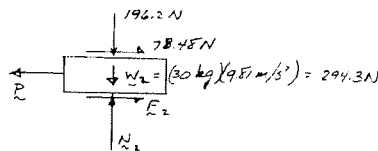 196.2 N
78.48 N
P W₂ = (30 kg)(9.81 m/s²) = 294.3 N
F₂
N₂